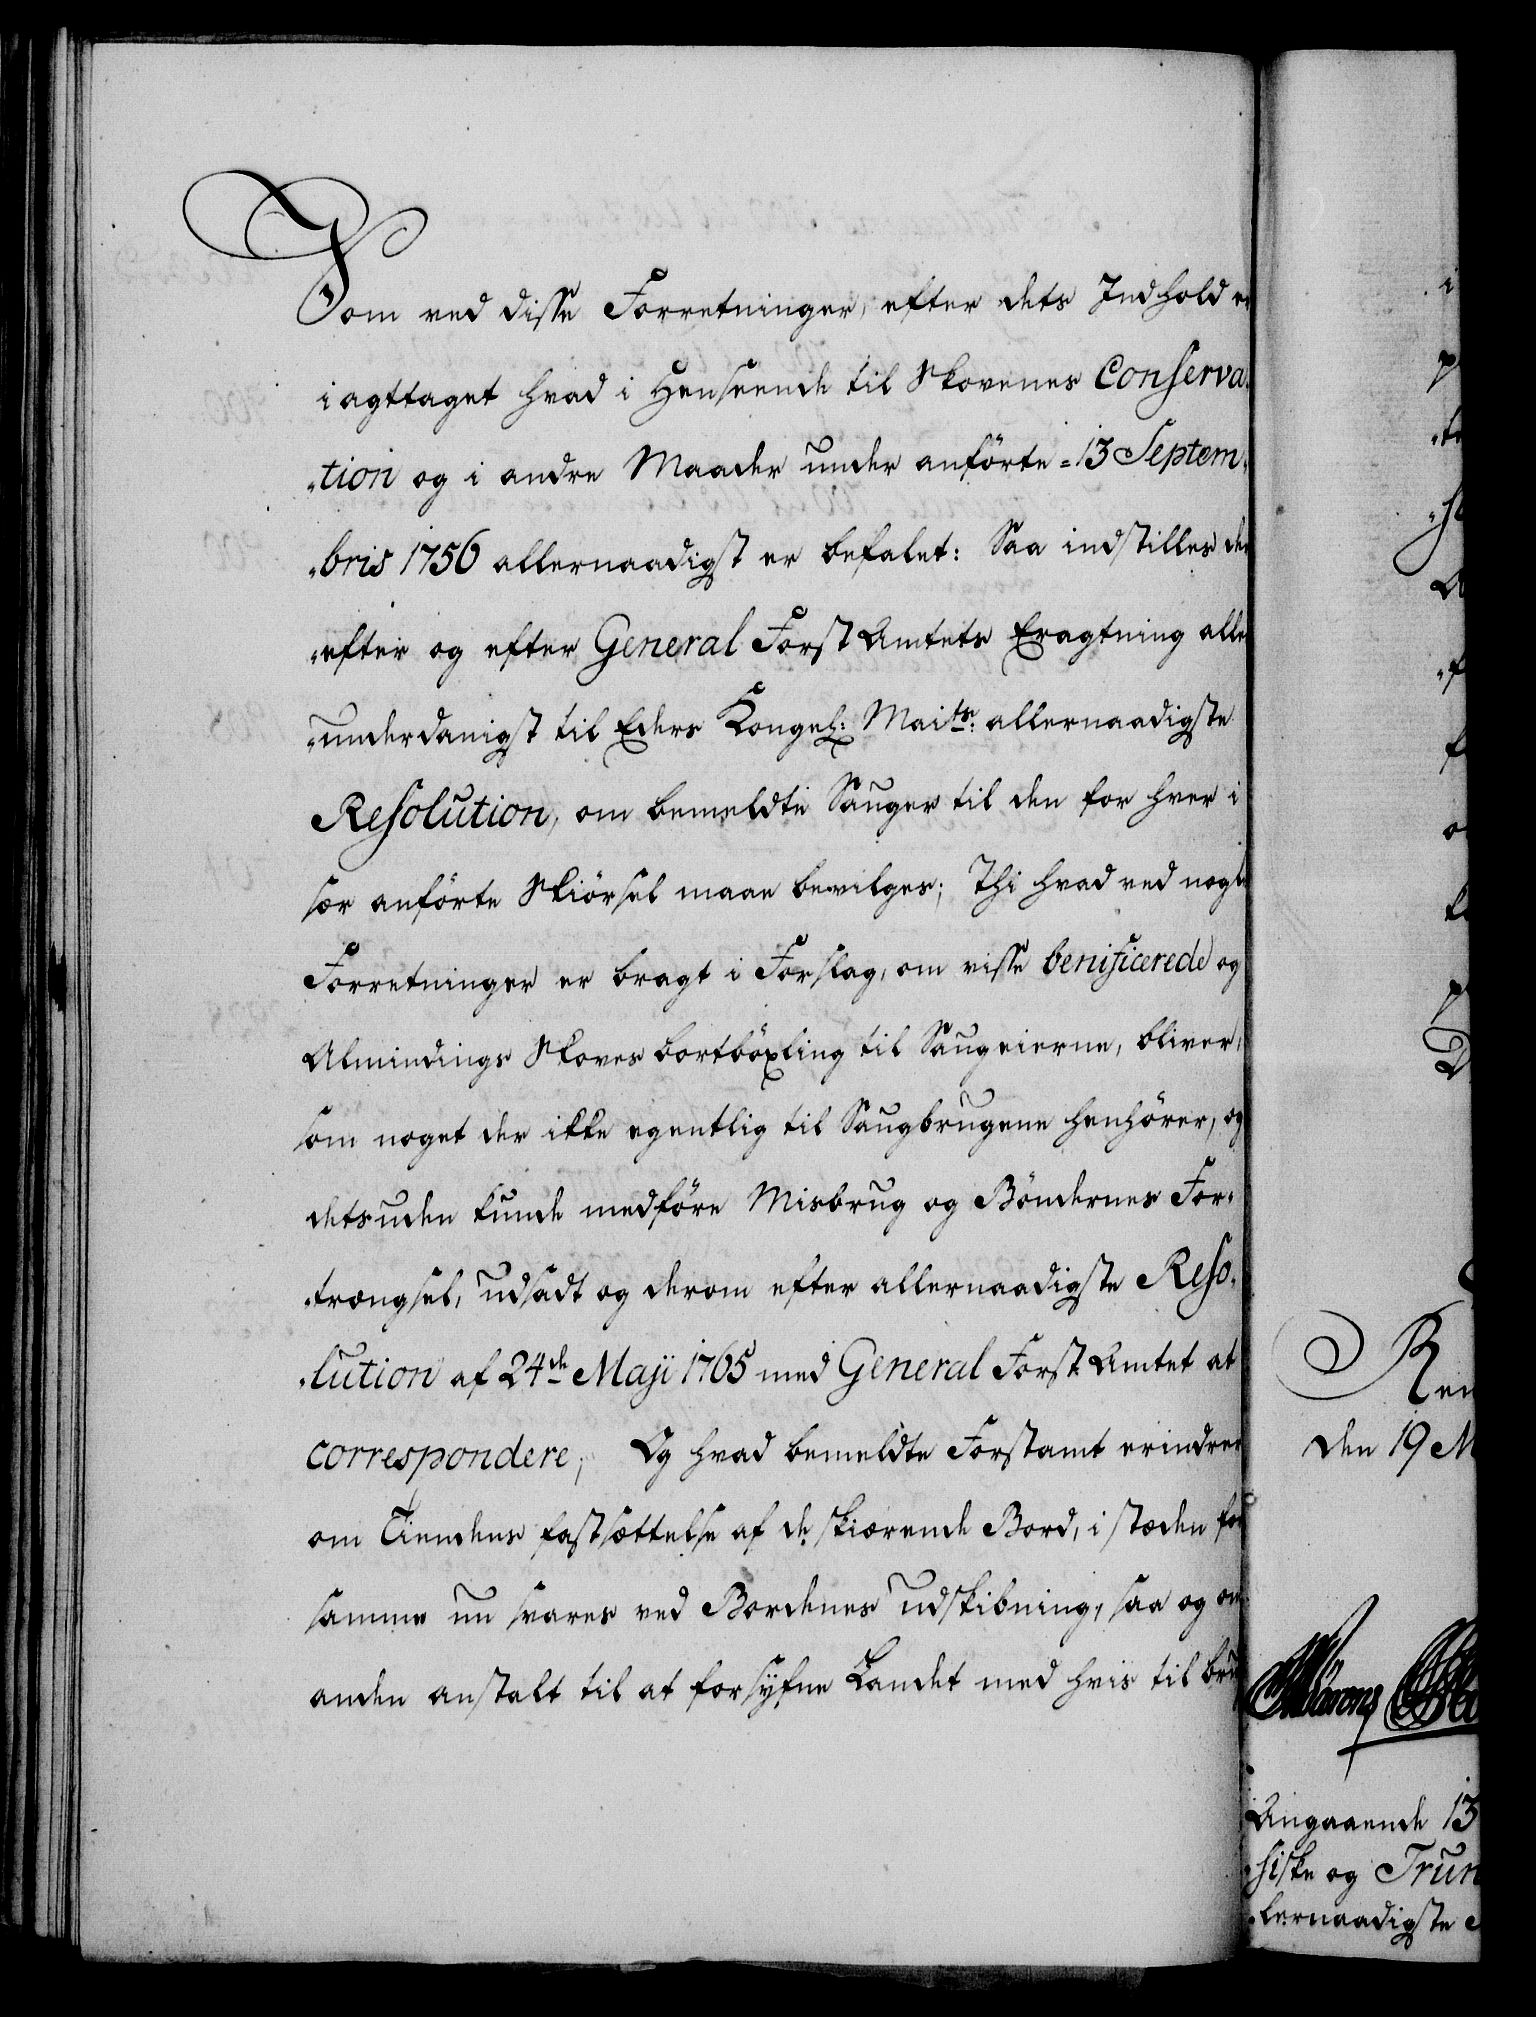 Som ved disse Forretninger, efter dets Indhold er
i agttaget hvad i Henseende til Skovenes Conserva-
-tion og i andre Maader under anförte 13 Septem-
-bris 1756 allernaadigst er befalet: Saa indstilles der
-efter og efter General Forst Amtets Eragtning aller
-underdanigst til Eders Kongel: Maits: allernaadigste
Resolution, om bemeldte Sauger til den for hver i
sær anförte Skiörsel maae bevilges; Thi hvad ved nogle
Forretninger er bragt i Forslag, om visse benificerede og
Almindings Skoves bortböxling til Saugeierne, bliver,
som noget der ikke egentlig til Saugbrugene henhörer, og
detsuden kunde medföre Misbrug og Böndernes For-
-trængsel, udsadt og derom efter allernaadigste Reso-
-lution af 24de Maji 1765 med General Forst Amtet at
correspondere; Og hvad bemeldte Forstamt erindrer
om Tiendens fastsættelse af de skiærende Bord, i stæden for
samme nu svares ved Bordenes udskibning, saa og om
anden anstalt til at forsÿfne Landet med hvis til brug
Ren
den 19 M
Angaaende 13
-siske og Trun
-lernaadigste